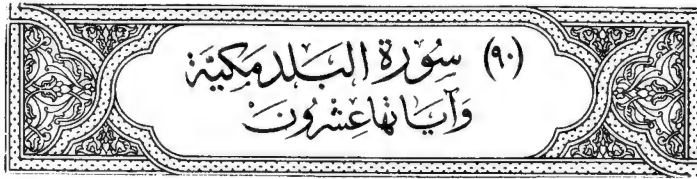 (٩٠) سُورَةُ البَلَدِ مَكِيَّة
وَآيَاتُهَا عِشْرُونَ